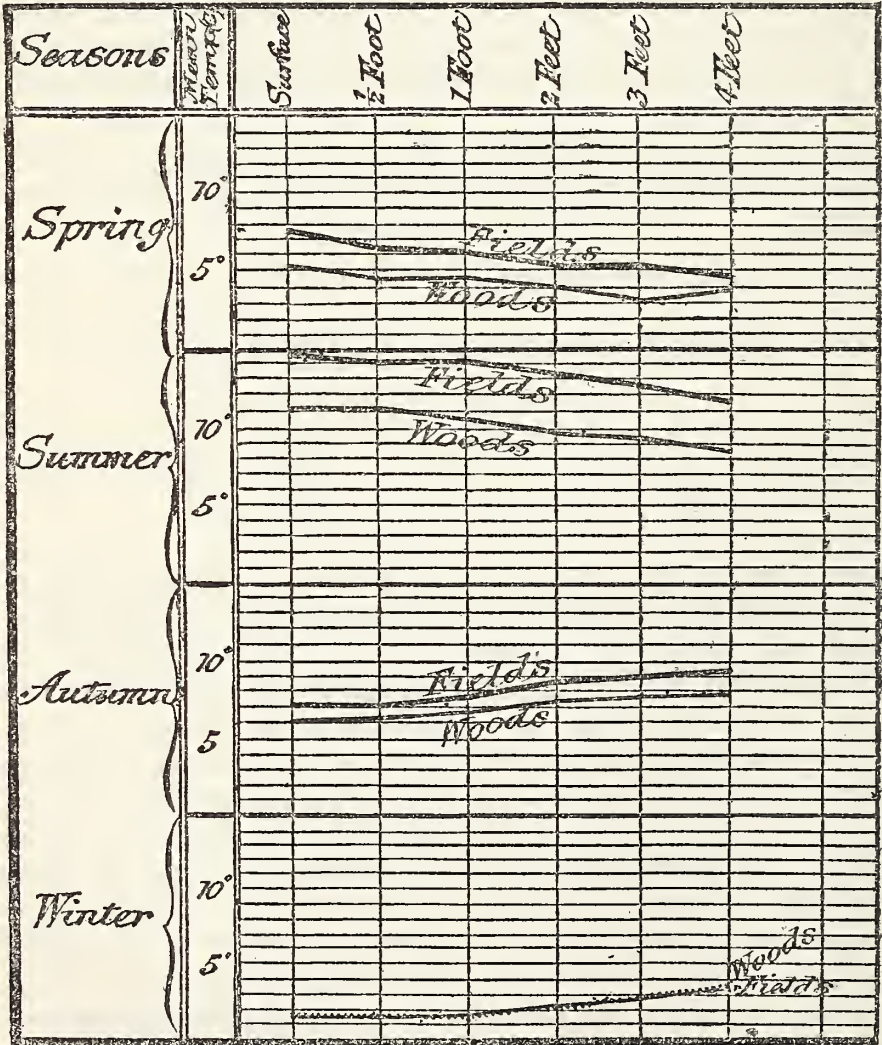 Seasons Mean Temp. Surface ½ Foot 1 Foot 2 Feet 3 Feet 4 Feet
Spring
10°
5°
Fields
Woods
Summer
10°
5°
Fields
Woods
Autumn
10°
5
Fields
Woods
Winter
10°
5°
Woods
Fields